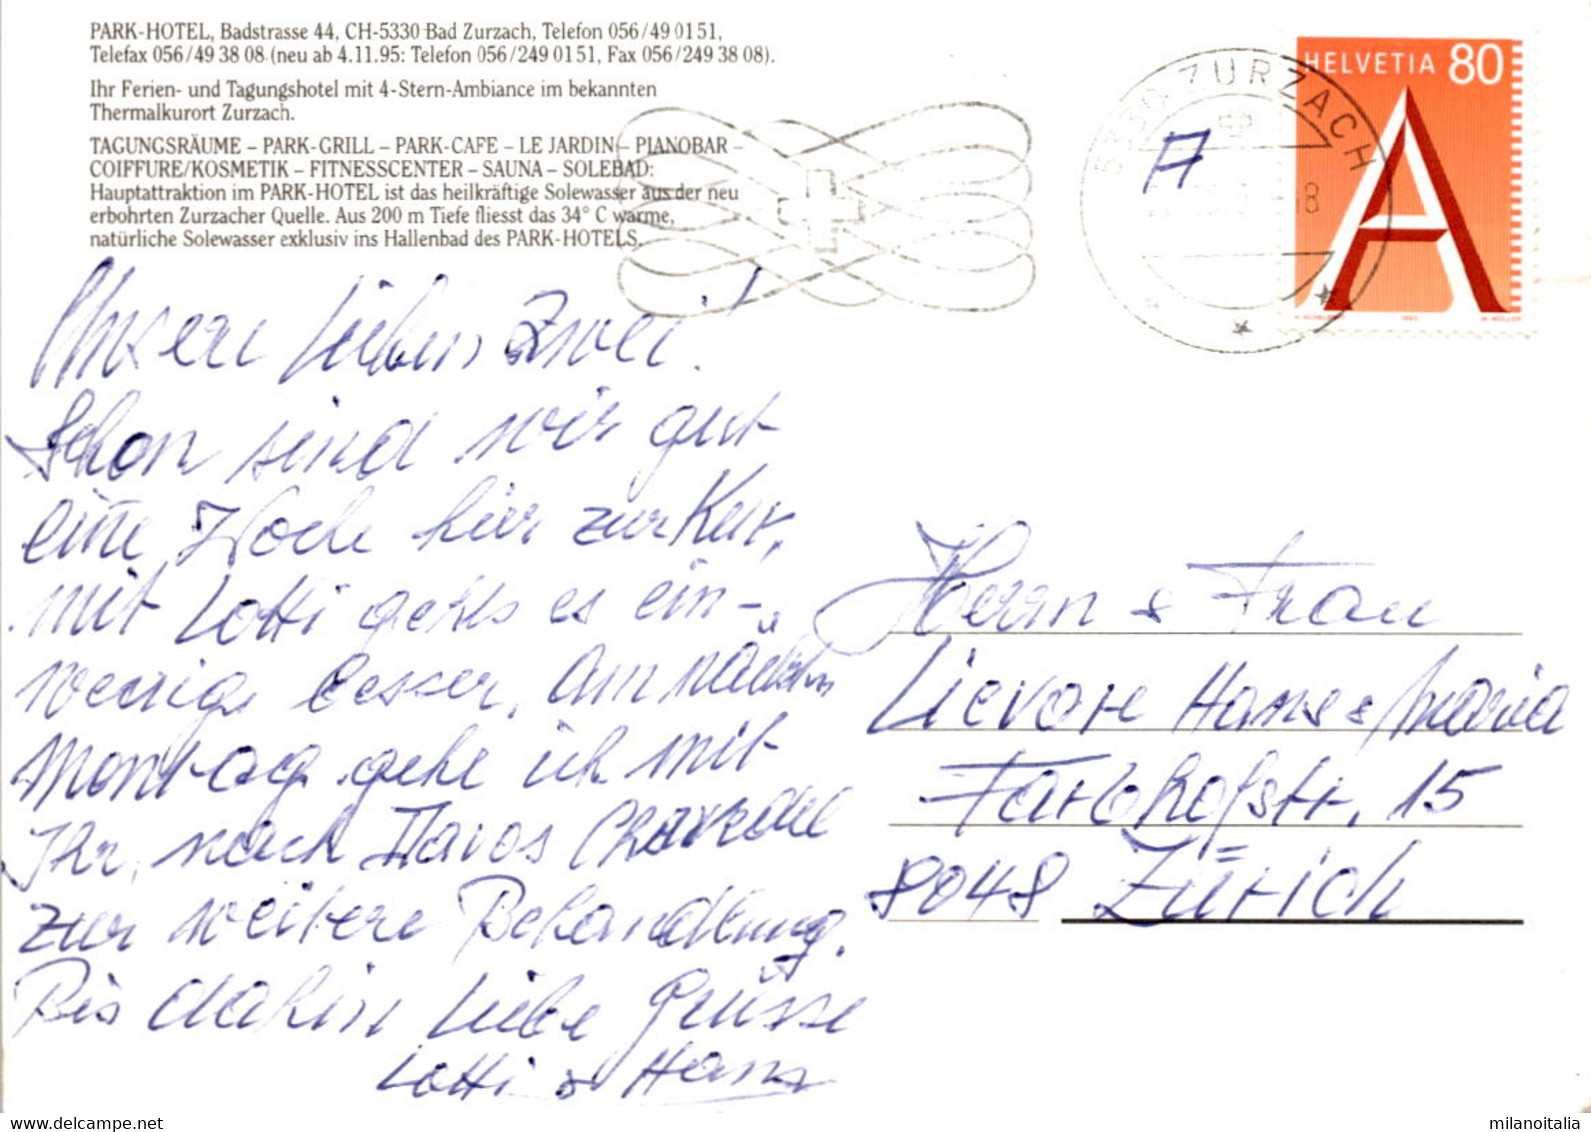 PARK-HOTEL, Badstrasse 44, CH-5330 Bad Zurzach, Telefon 056/49 01 51,
Telefax 056/49 38 08 (neu ab 4.11.95: Telefon 056/249 01 51, Fax 056/249 38 08).
Ihr Ferien- und Tagungshotel mit 4-Stern-Ambiance im bekannten
Thermalkurort Zurzach.
TAGUNGSRÄUME – PARK-GRILL – PARK-CAFE – LE JARDIN – PIANOBAR –
COIFFURE/KOSMETIK – FITNESSCENTER – SAUNA – SOLEBAD:
Hauptattraktion im PARK-HOTEL ist das heilkräftige Solewasser aus der neu
erbohrten Zurzacher Quelle. Aus 200 m Tiefe fliesst das 34° C warme,
natürliche Solewasser exklusiv ins Hallenbad des PARK-HOTELS.
HELVETIA 80
A
5330 ZURZACH
18
A
Unsere lieben zwei!
Schon sind wir gut
eine Woche hier zur Kur,
mit Lotti gehts es ein-
wenig besser, am nächsten
Montag gehe ich mit
Ihr, nach Davos
zur weitere Behandlung.
Bis dahin liebe Grüsse
Lotti & Hans
Herrn & Frau
Lievore Hans & Maria
Farbhofstr. 15
8048 Zürich
www.delcampe.net
milanoitalia